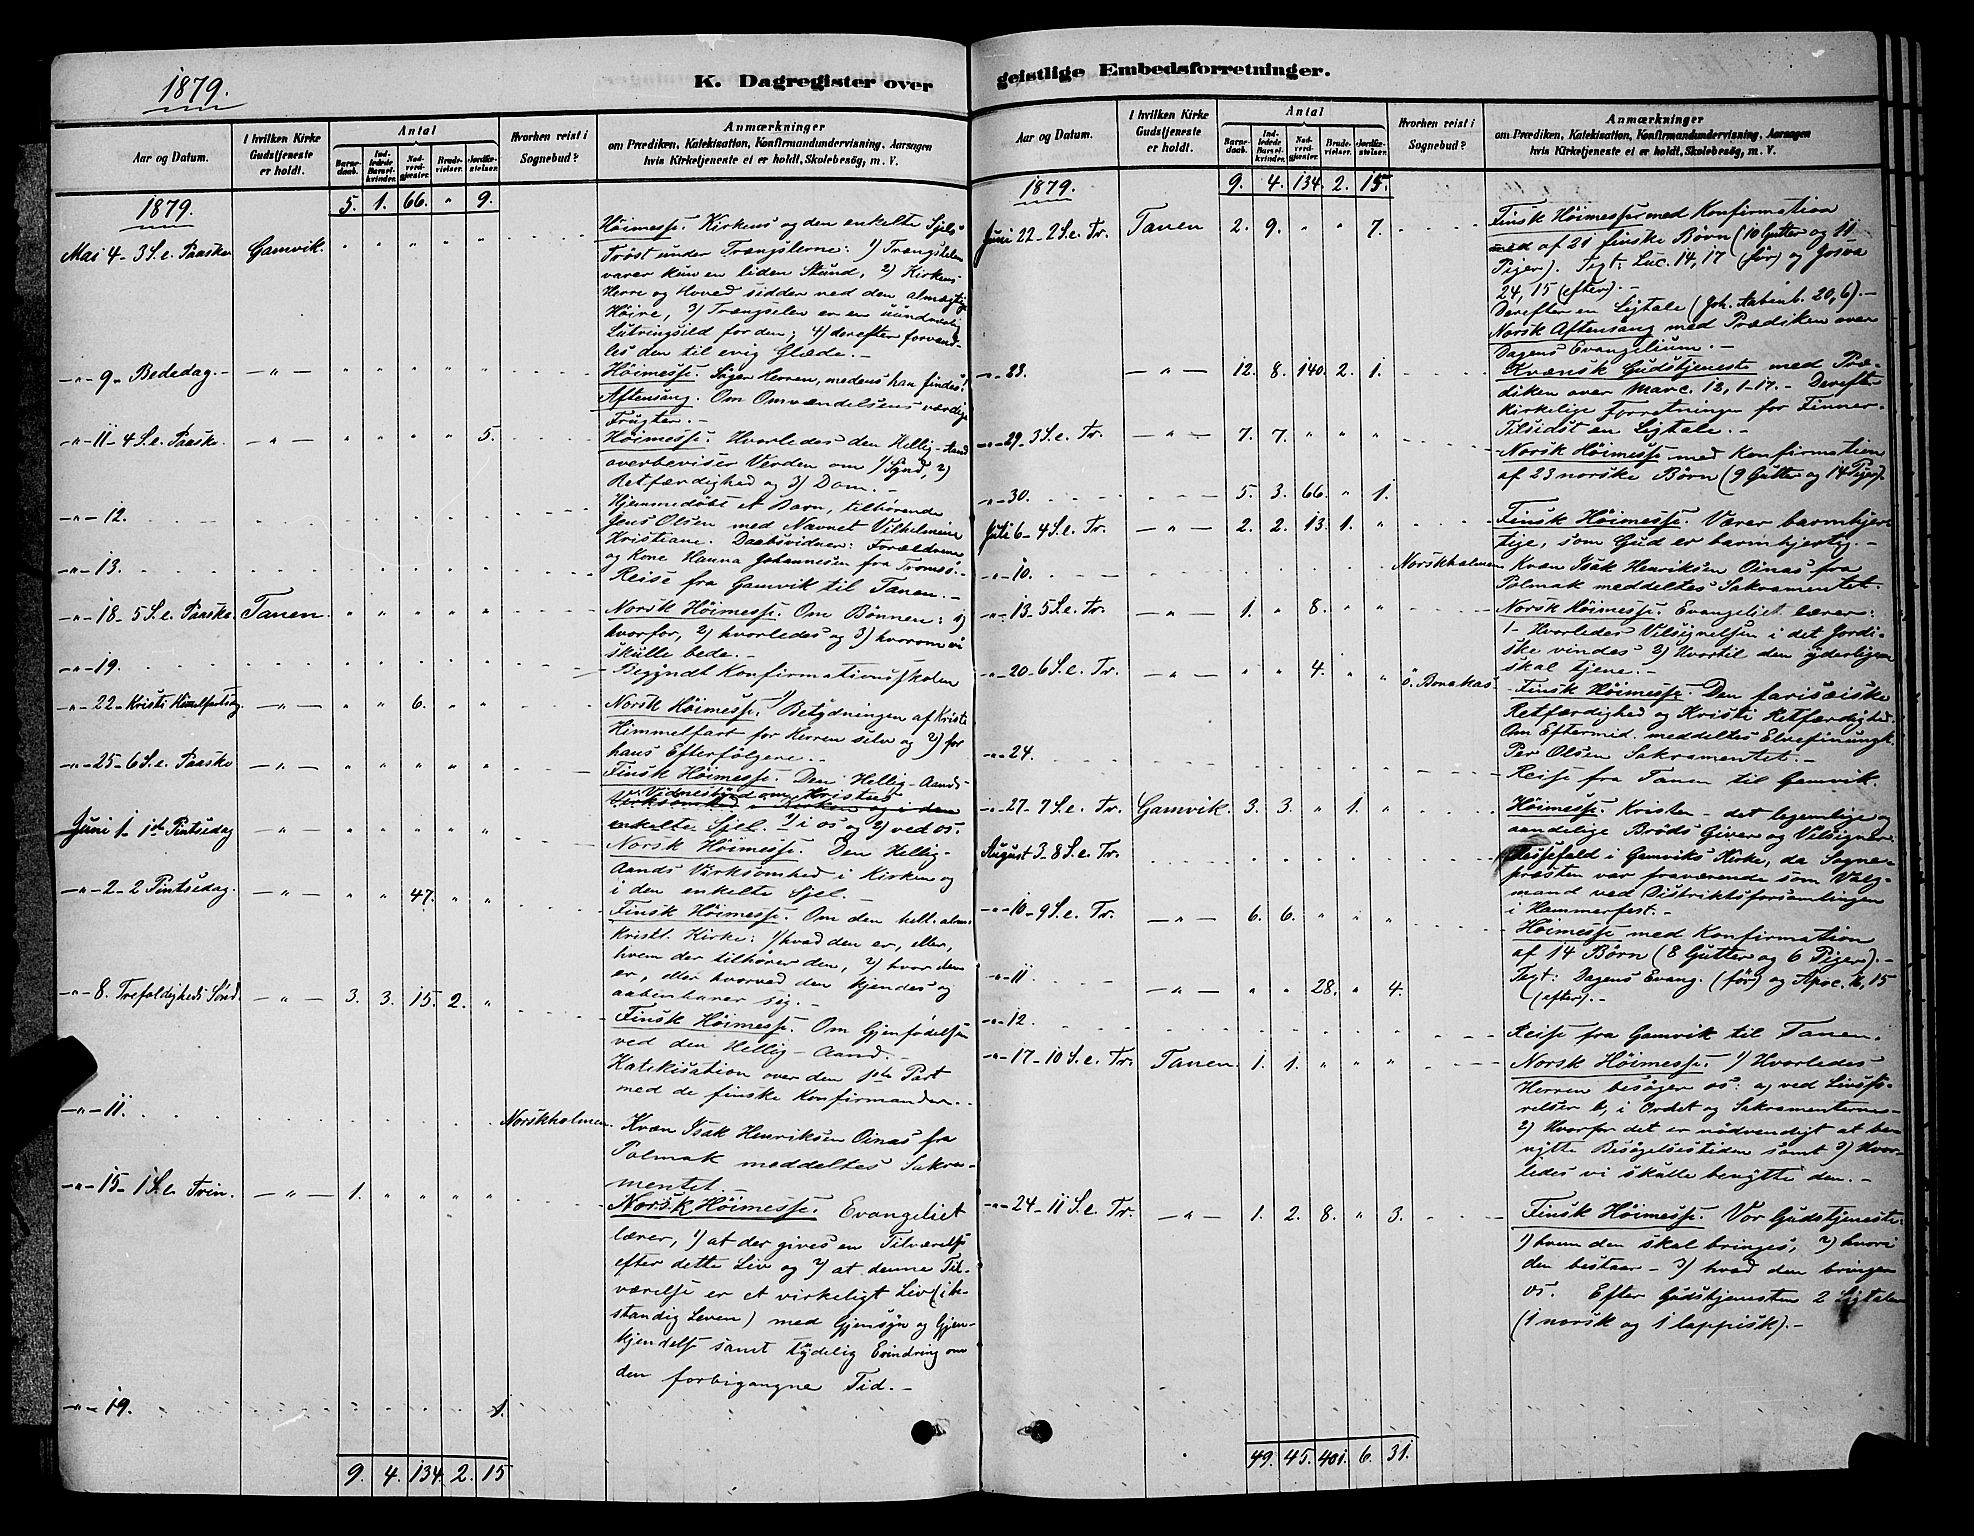 1879.
K. Dagregister over
Aar og Datum.
I hvilken Kirke Gudstjeneste er holdt.
Antal
Barnedaab.
Indledede Barselkvinder.
Nadverdgjæster.
Brudevielser.
Jordfæstelser.
Hvorhen reist i Sognebud?
Anmærkninger
om Prædiken, Katekisation, Konfirmandundervisning, Aarsagen
hvis Kirketjeneste ei er holdt, Skolebesøg, m. V.
1879. 5. 1. 66. " 9.
Mai 4 - 3 S. e. Paaske Gamvik. " " " " "
Høimesse. Kirkens og den enkelte Sjels
Trøst under Trængslerne: 1) Trængselen
varer kun en liden Stund, 2) Kirkens
Herre og Hoved sidder ved den almægtiges
Høire, 3) Trængselen er en uundværlig
Lutringsild for den; 4) derefter forvand-
les den til evig Glæde. -
-"- 9. Bededag. - " - " " " " "
Høimesse. Søger Herren, medens han findes!
Aftensang. Om Omvendelsens værdige
Frugter. -
-"- 11 - 4 S. e. Paaske. - " - " " " " 5.
Høimesse. Hvorledes den Hellig-Aand
overbeviser Verden om 1) Synd, 2)
Retfærdighed og 3) Dom. -
-"- 12.
Hjemmedøbt et Barn, tilhørende
Jens Olsen med Navnet Vilhelmine
Kristiane. Daabsvidner: Forældrene
og Kone Hanna Johannesen fra Tromsø. -
-"- 13.
Reise fra Gamvik til Tanen. -
-"- 18 - 5 S. e. Paaske. Tanen. " " " " "
Norsk Høimesse. Om Bønnen: 1)
hvorfor, 2) hvorledes og 3) hvorom vi
skulle bede. -
-"- 19.
Begyndt Konfirmationsskolen
-"- 22 - Kristi Himmelfartsdag - " - " " 6. " "
Norsk Høimesse. 1) Betydningen af Kristi
Himmelfart for Herren selv og 2) for
hans Efterfølgere. -
-"- 25 - 6 S. e. Paaske - " - " " " " "
Finsk Høimesse. Den Hellig-Aands
Vidnesbyrd om Kristus
Virksomhed i Kirken og i den
enkelte Sjel. 1) i os og 2) ved os.
Juni 1 - 1ste Pintsedag - " - " " " " "
Norsk Høimesse. Den Hellig-
Aands Virksomhed i Kirken og
i den enkelte Sjel. -
-"- 2 - 2 Pintsedag. - " - " " 47. " "
Finsk Høimesse. Om den hell. alm.
Kristl. Kirke: 1) hvad den er, eller,
hvem der tilhører den, 2) hvor den
er, eller hvorved den kjendes og
aabenbarer sig. -
-"- 8. Trefoldigheds Sønd. - " - 3. 3. 15. 2. "
Finsk Høimesse. Om Gjenfødelsen
ved den Hellig-Aand. -
Katekisation over den 1ste Part
med de finske Konfirmander. -
-"- 11. Norskholmen.
Kvæn Isak Henriksen Oinas fra
Polmak meddeltes Sakra-
mentet.
-"- 15 - 1 S. e. Trin. - " - 1. " " " "
Norsk Høimesse. Evangeliet
lærer, 1) at der gives en Tilværelse
efter dette Liv og 2) at denne Til-
værelse er et virkeligt Liv (ibe-
standig Leven) med Gjensyn og Gjen-
kjendelse samt tydelig Erindring om
den forbigangne Tid. -
-"- 19. 1.
9. 4. 134. 2. 15
geistlige Embedsforretninger.
Aar og Datum.
I hvilken Kirke Gudstjeneste er holdt.
Antal
Barnedaab.
Indledede Barselkvinder.
Nadverdgjæster.
Brudevielser.
Jordfæstelser.
Hvorhen reist i Sognebud?
Anmærkninger
om Prædiken, Katekisation, Konfirmandundervisning, Aarsagen
hvis Kirketjeneste ei er holdt, Skolebesøg, m. V.
1879. 9. 4. 134. 2. 15.
Juni 22 - 2 S. e. Tr. Tanen 2. 9. " " 7.
Finsk Høimesse med Konfirmation
med af 21 finske Børn (10 Gutter og 11
Piger). Txt: Luc. 14, 17 (før) og Josva
24, 15 (efter). -
Derefter en Ligtale (Joh. Aabenb. 20, 6). -
Norsk Aftensang med Prædiken over
Dagens Evangelium. -
-"- 23. - " - 12. 8. 140. 2. 1.
Kvænsk Gudstjeneste med Præ-
diken over Marc. 12, 1-17. - Derefter
kirkelige Forretninger for Finner -
Tilsidst en Ligtale. -
-"- 29. 3 S. e. Tr. - " - 7. 7. " " "
Norsk Høimesse med Konfirmation
af 23 norske Børn (9 Gutter og 14 Piger).
-"- 30. - " - 5. 3. 66. " 1.
Juli 6 - 4 S. e. Tr. - " - 2. 2. 13. 1. "
Finsk Høimesse. Værer barmhjer-
tige, som Gud er barmhjertig. -
-"- 10. Norskholmen
Kvæn Isak Henriksen Oinas fra
Polmak meddeltes Sakramentet.
-"- 13 - 5 S. e. Tr. - " - 1. " 8. " "
Norsk Høimesse. Evangeliet lærer:
1 - Hvorledes Velsignelsen i det Jordi-
ske vindes 2) Hvortil den yderligere
skal tjene. -
-"- 20 - 6 S. e. Tr. - " - " " 4. " " Bonakas
Finsk Høimesse. Den farisæiske
Retfærdighed og Kristi Retfærdighed.
Om Eftermid. meddeltes Elvefinungk.
Per Olsen Sakramentet. -
-"- 24.
Reise fra Tanen til Gamvik.
-"- 27 - 7 S. e. Tr. Gamvik. 3. 3. " 1. "
Høimesse. Kristen - det legemlige og
aandelige Brøds Giver og Velsigner.
August 3 - 8 S. e. Tr.
Messefald i Gamviks Kirke, da Sogne-
præsten var fraværende som Valg-
mand ved Distriktsforsamlingen
i Hammerfest. -
-"- 10 - 9 S. e. Tr. - " - 6. 6. " " "
Høimesse med Konfirmation
af 14 Børn (8 Gutter og 6 Piger). -
Txt: Dagens Evang. (før) og Apoc. 2, 15
(efter). -
-"- 11 - " - " " 28. " 4.
-"- 12
Reise fra Gamvik til Tanen.
-"- 17 - 10 S. e. Tr. Tanen. 1. 1. " " "
Norsk Høimesse. 1) Hvorledes
Herren besøger os: a) ved Livsfø-
relser b) i Ordet og Sakramenterne -
2) Hvorfor det er nødvendigt at be-
nytte Besøgelsestiden samt 3) Hvor-
ledes vi skulle benytte den. -
-"- 24 - 11 S. e. Tr. - " - 1. 2. 8. " 3.
Finsk Høimesse. Vor Gudstjeneste:
1) hvem den skal bringes; 2) hvori
den bestaar - 3) hvad den bringer
os. Efter Gudstjenesten 2 Ligtaler
(1 norsk og 1 lappisk). -
49. 45. 401. 6. 31.